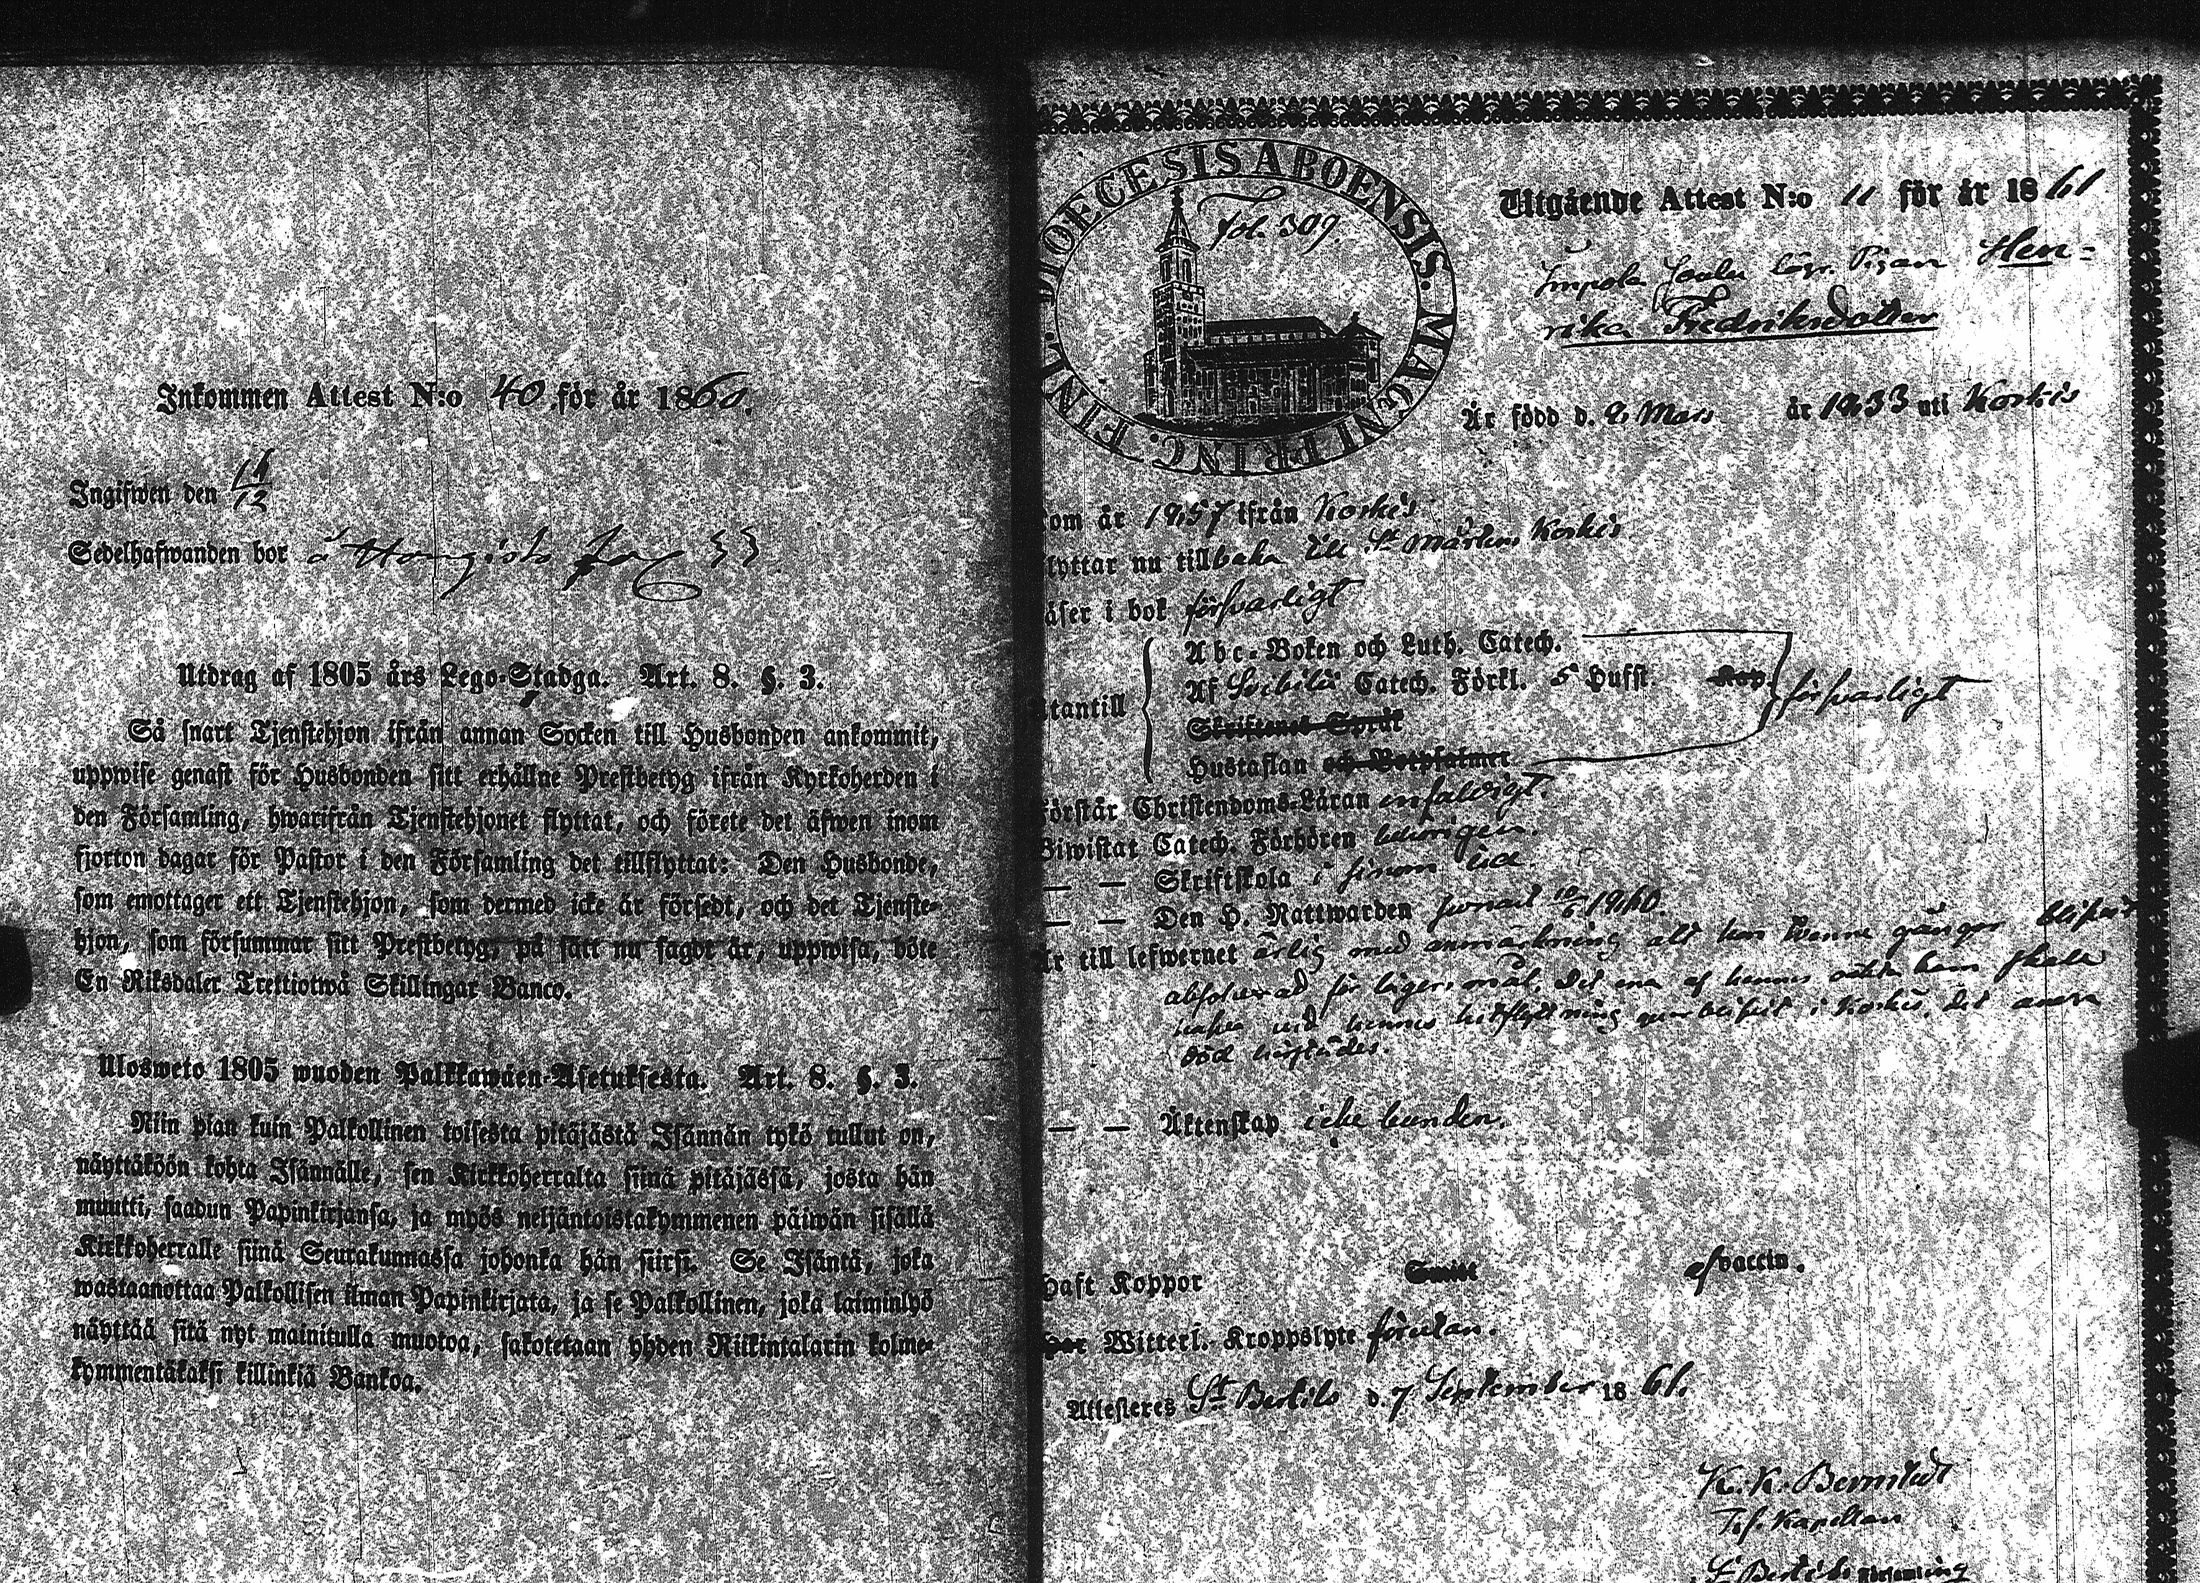 Inkommen Attest N:o 40 för år 1860.
Ingifwen den 16/12
Sedelhafwanden bor å
Utdrag af 1805 års Lego-Stadga. Art. 8. §. 3.
Så snart Tjenstehjon ifrån annan Socken till Husbonden ankommit,
uppwise genast för Husbonden sitt erhållne Prestbetyg ifrån Kyrkoherden i
den Församling, hwarifrån Tjenstehjonet flyttat, och förete det äfwen inom
fjorton dagar för Pastor i den Församling det tillflyttat: Den Husbonde,
som emottager ett Tjenstehjon, som dermed icke är försedt, och det Tjenste-
hjon, som försummar sitt Prestbetyg, på sätt nu sagdt är, uppwisa, böte
En Riksdaler Trettiotwå Skillingar Banco.
Ulosweto 1805 wuoden Palkkawäen-Asetuksesta. Art. 8. §. 3.
Niin pian kuin Palkollinen toisesta pitäjästä Isännän tykö tullut on,
näyttäköön kohta Isännälle, sen Kirkkoherralta siinä pitäjässä, josta hän
muutti, saadun Papinkirjansa, ja myös neljäntoistakymmenen päiwän sisällä
Kirkkoherralle siinä Seurakunnassa johonka hän siirsi. Se Isäntä, joka
wastaanottaa Palkollisen ilman Papinkirjata, ja se Palkollinen, joka laiminlyö
näyttää sitä nyt mainitulla muotoa, sakotetaan yhden Riikintalarin kolme-
kymmentäkaksi killinkiä Bankoa.
FINL. DIOECESIS ABOENSIS. MAGNI PRINC.
fol. 309.
Utgående Attest N:o 11 för år 1861
Pigan Hen-
rika Fredriksdotter
Är född d. 2 Mars år 1833 uti Koskis
om år 1857 ifrån Koskis
lyttar nu tillbaka till St Mårtens Koskis
äser i bok försvarligt
Abc-Boken och Luth. Catech.
Af Svebilii Catech. Förkl. 5 Hufst. Kap. försvarligt
tantill
Skriftenes Språk
Hustaflan och Botpsalmer
örstår Christendoms-Läran enfaldigt.
Biwistat Catech. Förhören behörigen.
— — Skriftskola i sinom tid.
— — Den H. Nattwarden senast 10/6 1860.
Är till lefwernet ärlig med anmärkning att hon tvenne gånger blifvit
absolverad för lägersmål. Det ena af hennes oäkta barn skall
hafva vid hennes hitflyttning qvarblifvit i Koskis, det andra
död
— — Äktenskap icke bunden.
haft Koppor Smitt af vaccin.
har Witterl. Kroppslyte förutan.
Attesteres St Bertils d. 7 September 1861.
Kapellan
St Bertils Församling